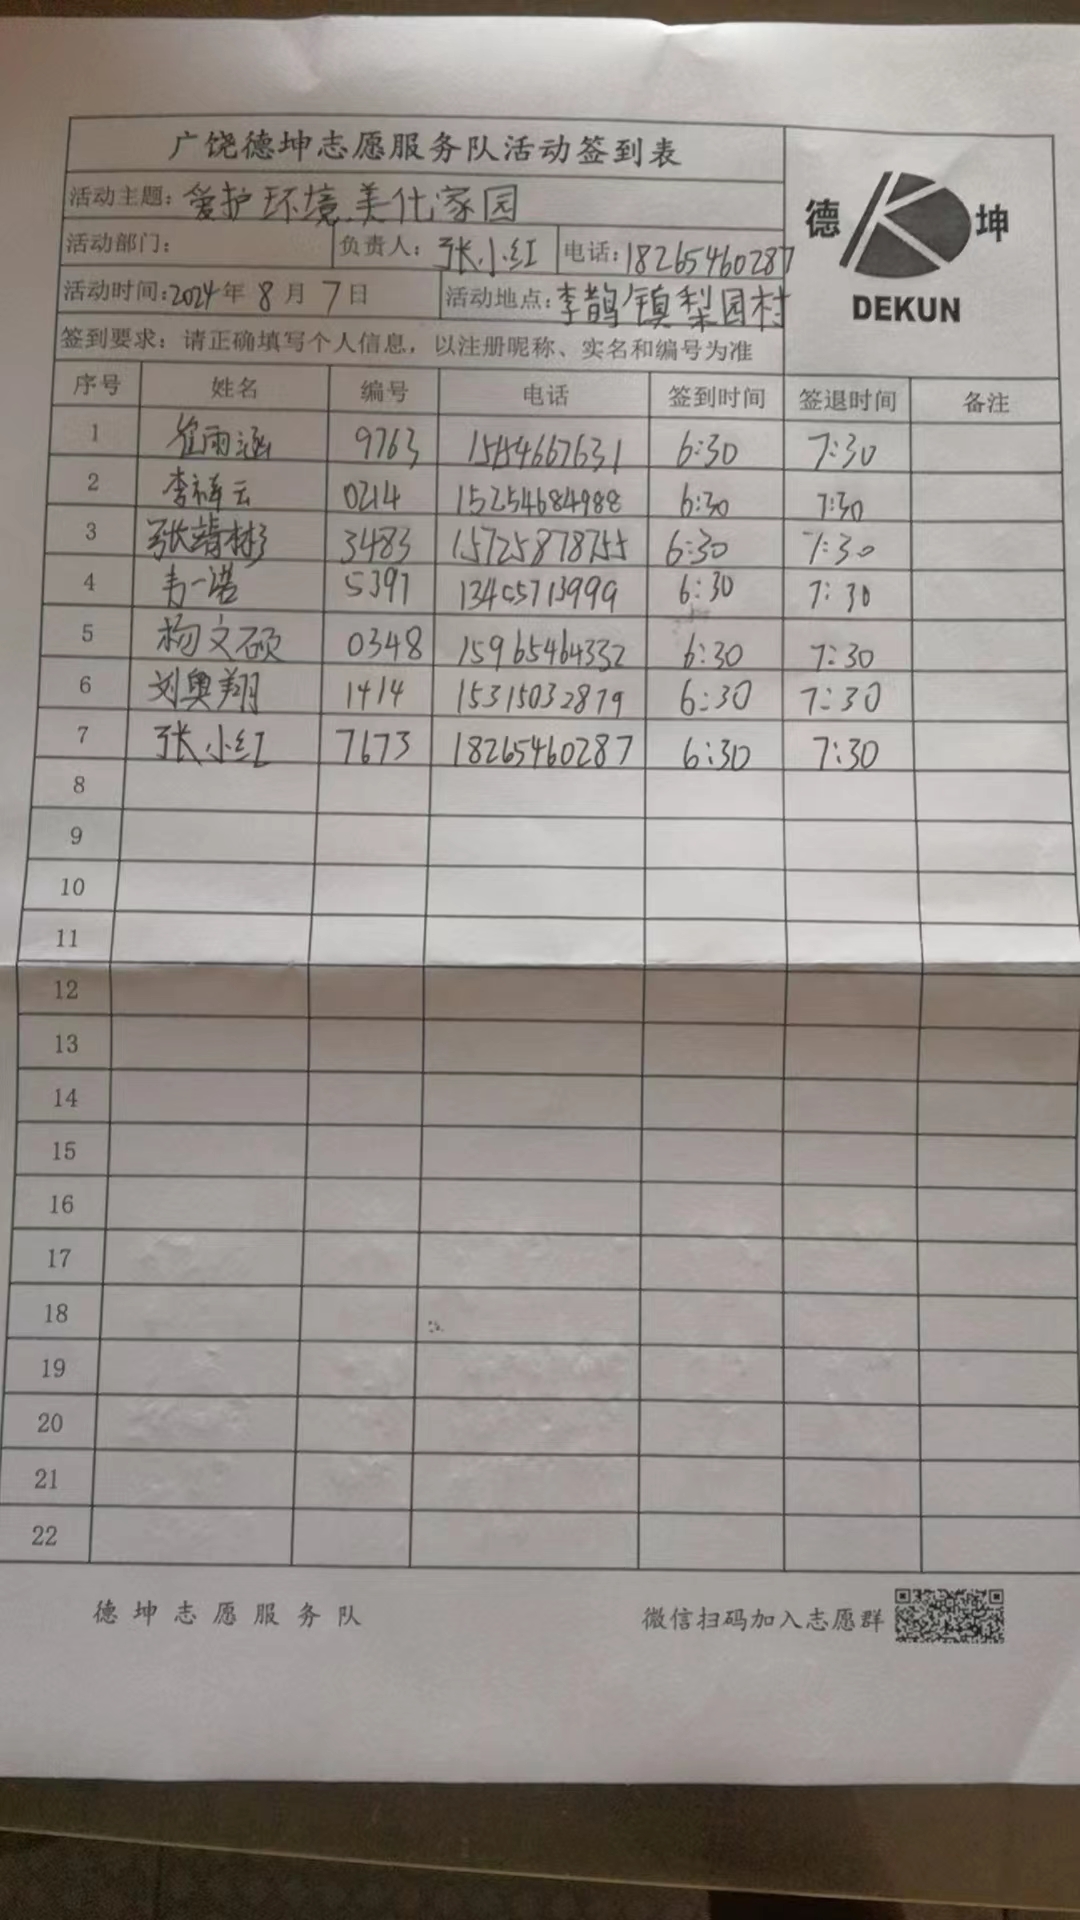 广饶德坤志愿服务队活动签到表
德 坤
DEKUN
活动主题：爱护环境.美化家园
活动部门： 负责人：张小红 电话：18265460287
活动时间：2024年 8 月 7 日 活动地点：李鹊镇梨园村
签到要求：请正确填写个人信息，以注册昵称、实名和编号为准
序号 姓名 编号 电话 签到时间 签退时间 备注
1 崔雨涵 9763 15154667631 6:30 7:30
2 李祥云 0214 15254684988 6:30 7:30
3 张靖彬 3483 15725878755 6:30 7:30
4 韦一诺 5397 13455713999 6:30 7:30
5 杨文硕 0348 15965464332 6:30 7:30
6 刘奥翔 1414 15315032879 6:30 7:30
7 张小红 7673 18265460287 6:30 7:30
8
9
10
11
12
13
14
15
16
17
18
19
20
21
22
德坤志愿服务队 微信扫码加入志愿群